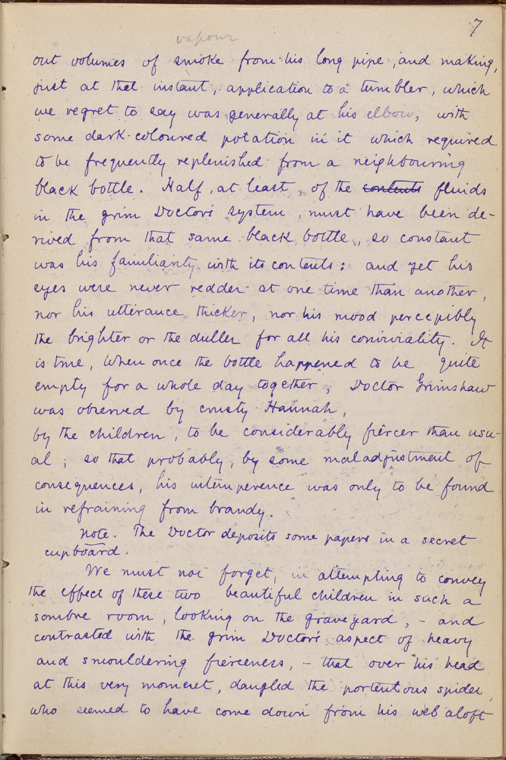 7
vapour
out volumes of smoke from his long pipe, and making,
just at that instant, application to a tumbler, which
we regret to say was generally at his elbow, with
some dark-coloured potation in it which required
to be frequently replenished from a neighbouring
black bottle. Half, at least, of the contents fluids
in the grim Doctor's system, must have been de-
rived from that same black bottle, so constant
was his familiarity with its contents: and yet his
eyes were never redder at one time than another,
nor his utterance thicker, nor his mood perceptibly
the brighter or the duller for all his conviviality. It
is true, when once the bottle happened to be quite
empty for a whole day together, Doctor Grimshaw
was observed by crusty Hannah,
by the children, to be considerably fiercer than usu-
al; so that probably, by some maladjustment of
consequences, his intemperence was only to be found
in refraining from brandy.
Note. The Doctor deposits some papers in a secret
cupboard.
We must not forget, in attempting to convey
the effect of these two beautiful children in such a
sombre room, looking on the graveyard, - and
contrasted with the grim Doctor's aspect of heavy
and smouldering fierceness, - that over his head
at this very moment, dangled the portentous spider,
who seemed to have come down from his web aloft